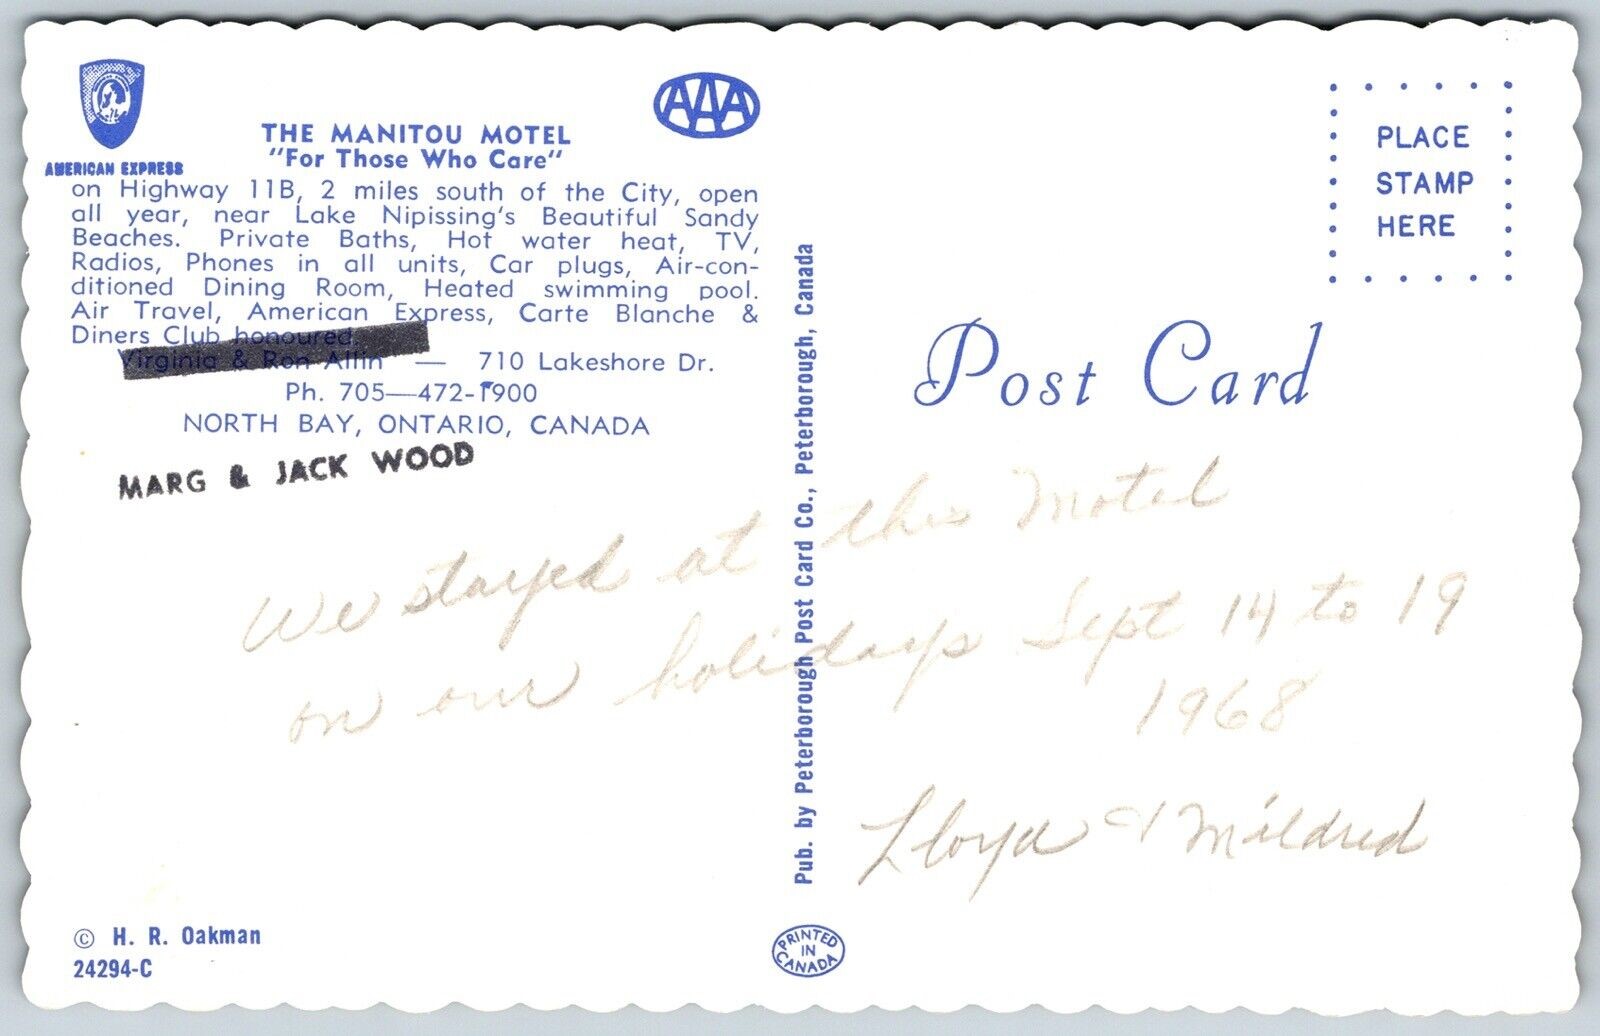 AMERICAN EXPRESS
AAA
THE MANITOU MOTEL
"For Those Who Care"
on Highway 11B, 2 miles south of the City, open
all year, near Lake Nipissing's Beautiful Sandy
Beaches. Private Baths, Hot water heat, TV,
Radios, Phones in all units, Car plugs, Air-con-
ditioned Dining Room, Heated swimming pool.
Air Travel, American Express, Carte Blanche &
Diners Club honoured.
Virginia & Ron Allin — 710 Lakeshore Dr.
Ph. 705—472-1900
NORTH BAY, ONTARIO, CANADA
MARG & JACK WOOD
PLACE
STAMP
HERE
Post Card
We stayed at this Motel
on our holidays Sept 14 to 19
1968
Lloyd & Mildred
Pub. by Peterborough Post Card Co., Peterborough, Canada
© H. R. Oakman
24294-C
PRINTED
IN
CANADA